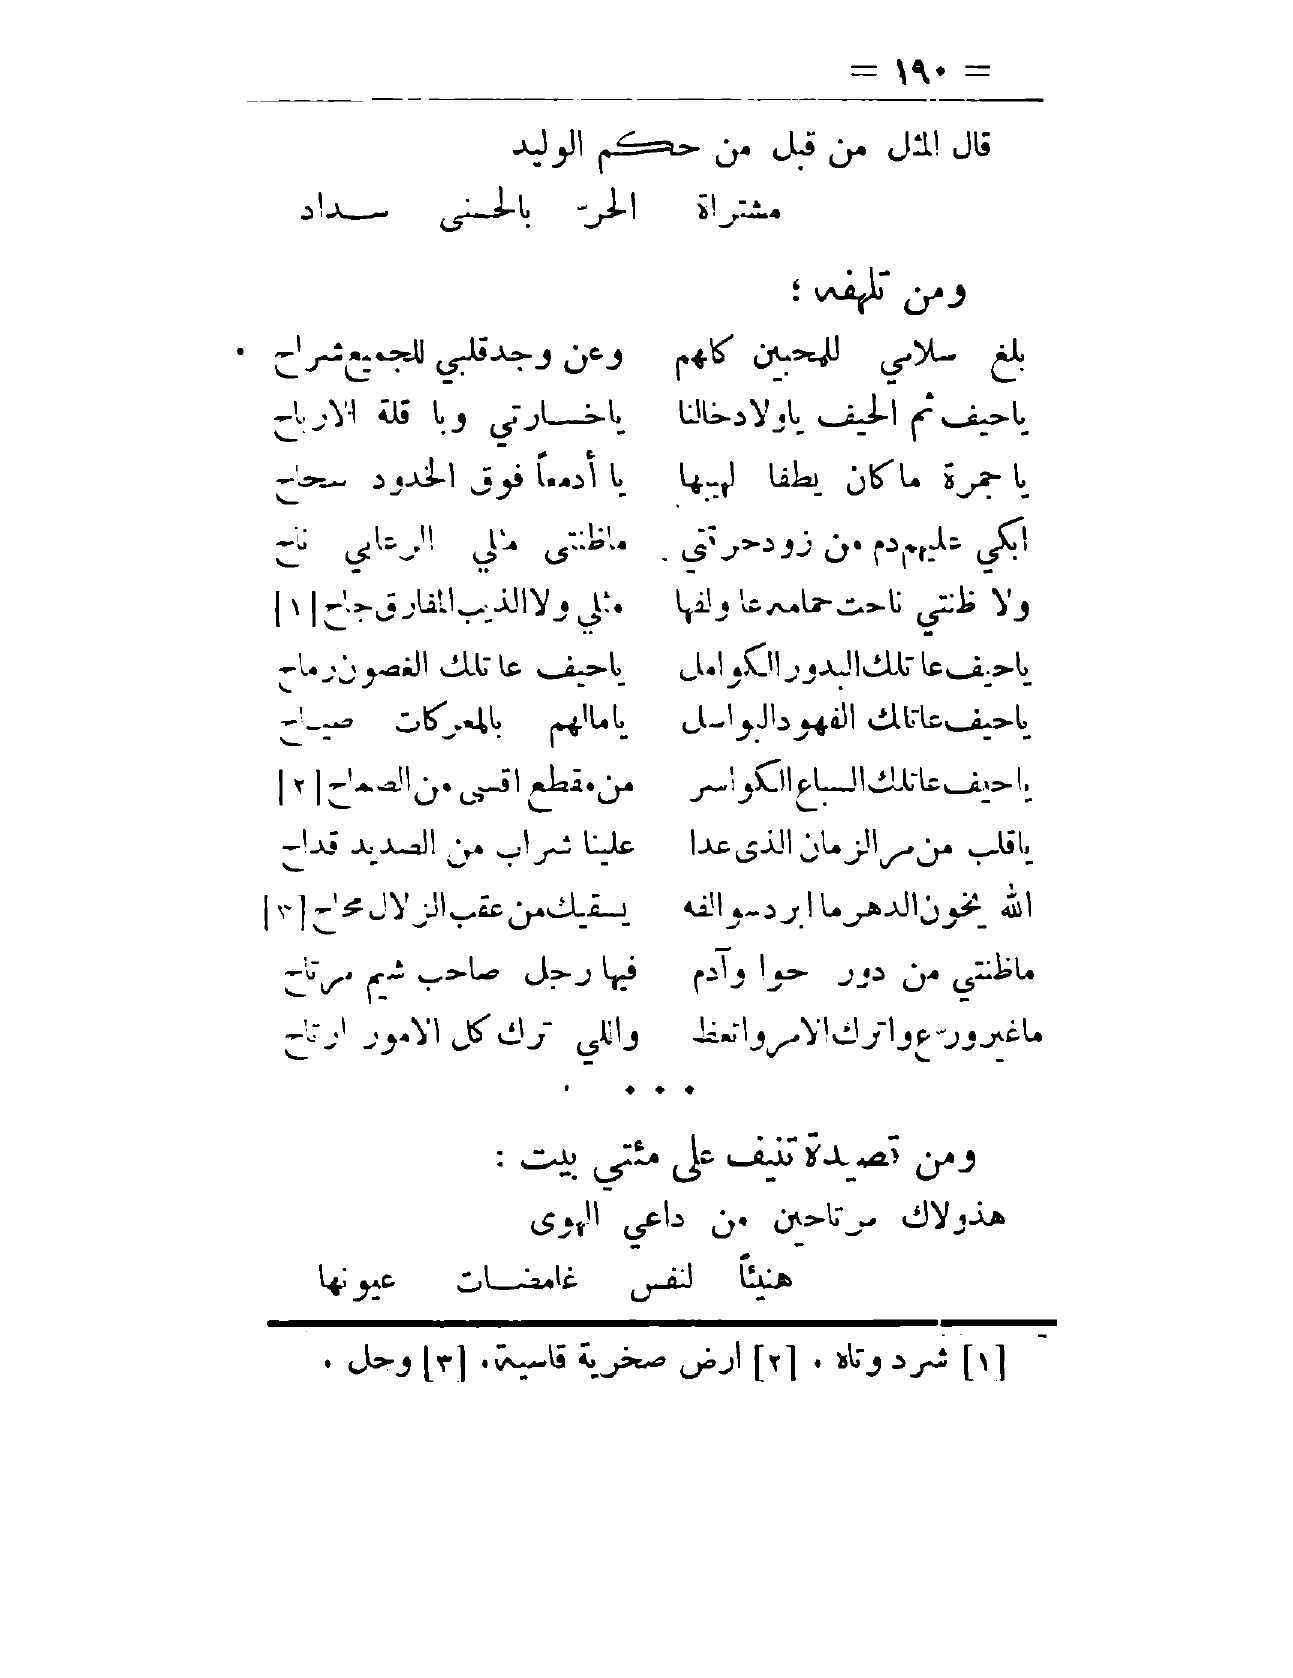 = ١٩٠ =
قال المثل من قبل من حكم الوليد
مشتراة الحرّ بالحسنى سداد
ومن تلهفه :
بلغ سلامي للمحبين كلهم وعن وجد قلبي للجميع شراح
ياحيف ثم الحيف ياولاد خالنا ياخسارتي ويا قلة الارباح
يا جمرة ما كان يطفا لهيبها يا أدمعاً فوق الخدود سحاح
ابكي عليهم دم من زود حرقتي ماظنتى مثلي الرعابي ناح
ولا ظنتي ناحت حمامه عا ولفها مثلي ولا الذيب المفارق جاح [١]
ياحيف عا تلك البدور الكوامل ياحيف عا تلك الغصون رماح
ياحيف عا تلك الفهود البواسل يامالهم بالمعركات صياح
ياحيف عا تلك السباع الكواسر من مقطع اقسى من الصماح [٢]
ياقلب من مر الزمان الذى عدا علينا شراب من الصديد قداح
الله يخون الدهر ما ابرد سوالفه يسقيك من عقب الزلال محاح [٣]
ماظنتي من دور حوا وآدم فيها رجل صاحب شيم مرتاح
ماغير ورّع واترك الامر واتعظ واللي ترك كل الامور ارتاح
ومن قصيدة تنيف على مئتي بيت :
هذولاك مرتاحين من داعي الهوى
هنيئاً لنفس غامضات عيونها
[١] شرد وتاه . [٢] ارض صخرية قاسية . [٣] وحل .